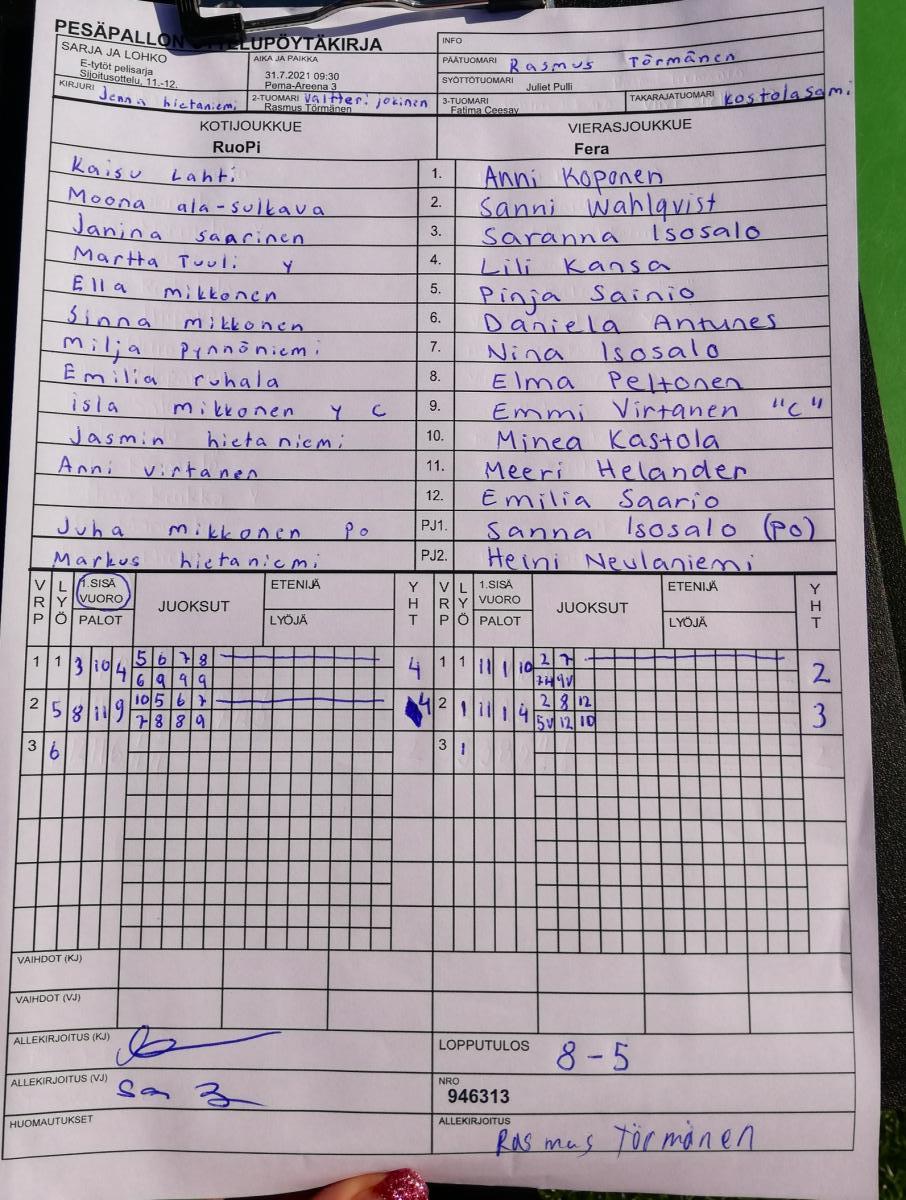 PESÄPALLON OTTELUPÖYTÄKIRJA
SARJA JA LOHKO
E-tytöt pelisarja
Sijoitusottelu, 11.-12.
AIKA JA PAIKKA
31.7.2021 09:30
Pema-Areena 3
INFO
PÄÄTUOMARI Rasmus Törmänen
SYÖTTÖTUOMARI
Juliet Pulli
KIRJURI Jenna hietaniemi
2-TUOMARI Valtteri jokinen
Rasmus Törmänen
3-TUOMARI
Fatima Ceesay
TAKARAJATUOMARI kostolasami
KOTIJOUKKUE VIERASJOUKKUE
RuoPi Fera
Kaisu Lahti 1. Anni Koponen
Moona ala-sulkava 2. Sanni Wahlqvist
Janina saarinen 3. Saranna Isosalo
Martta Tuuli y 4. Lili Kansa
Ella mikkonen 5. Pinja Sainio
Sinna mikkonen 6. Daniela Antunes
milja pynnöniemi 7. Nina Isosalo
Emilia ruhala 8. Elma Peltonen
isla mikkonen y c 9. Emmi Virtanen "C"
Jasmin hietaniemi 10. Minea Kastola
Anni virtanen 11. Meeri Helander
12. Emilia Saario
Juha mikkonen Po PJ1. Sanna Isosalo (PO)
Markus hietaniemi PJ2. Heini Neulaniemi
VRP LYÖ 1.SISÄ VUORO PALOT JUOKSUT ETENIJÄ LYÖJÄ YHT VRP LYÖ 1.SISÄ VUORO PALOT JUOKSUT ETENIJÄ LYÖJÄ YHT
1 1 3 10 4 5 6 7 8 4 1 1 11 1 10 2 7 2
6 9 9 9 7H 9V
2 5 8 11 9 10 5 6 7 4 2 1 11 1 4 2 8 12 3
7 8 8 9 5V 12 10
3 6 3 1
VAIHDOT (KJ)
VAIHDOT (VJ)
ALLEKIRJOITUS (KJ)
LOPPUTULOS 8-5
ALLEKIRJOITUS (VJ)
NRO
946313
HUOMAUTUKSET
ALLEKIRJOITUS
Rasmus Törmänen